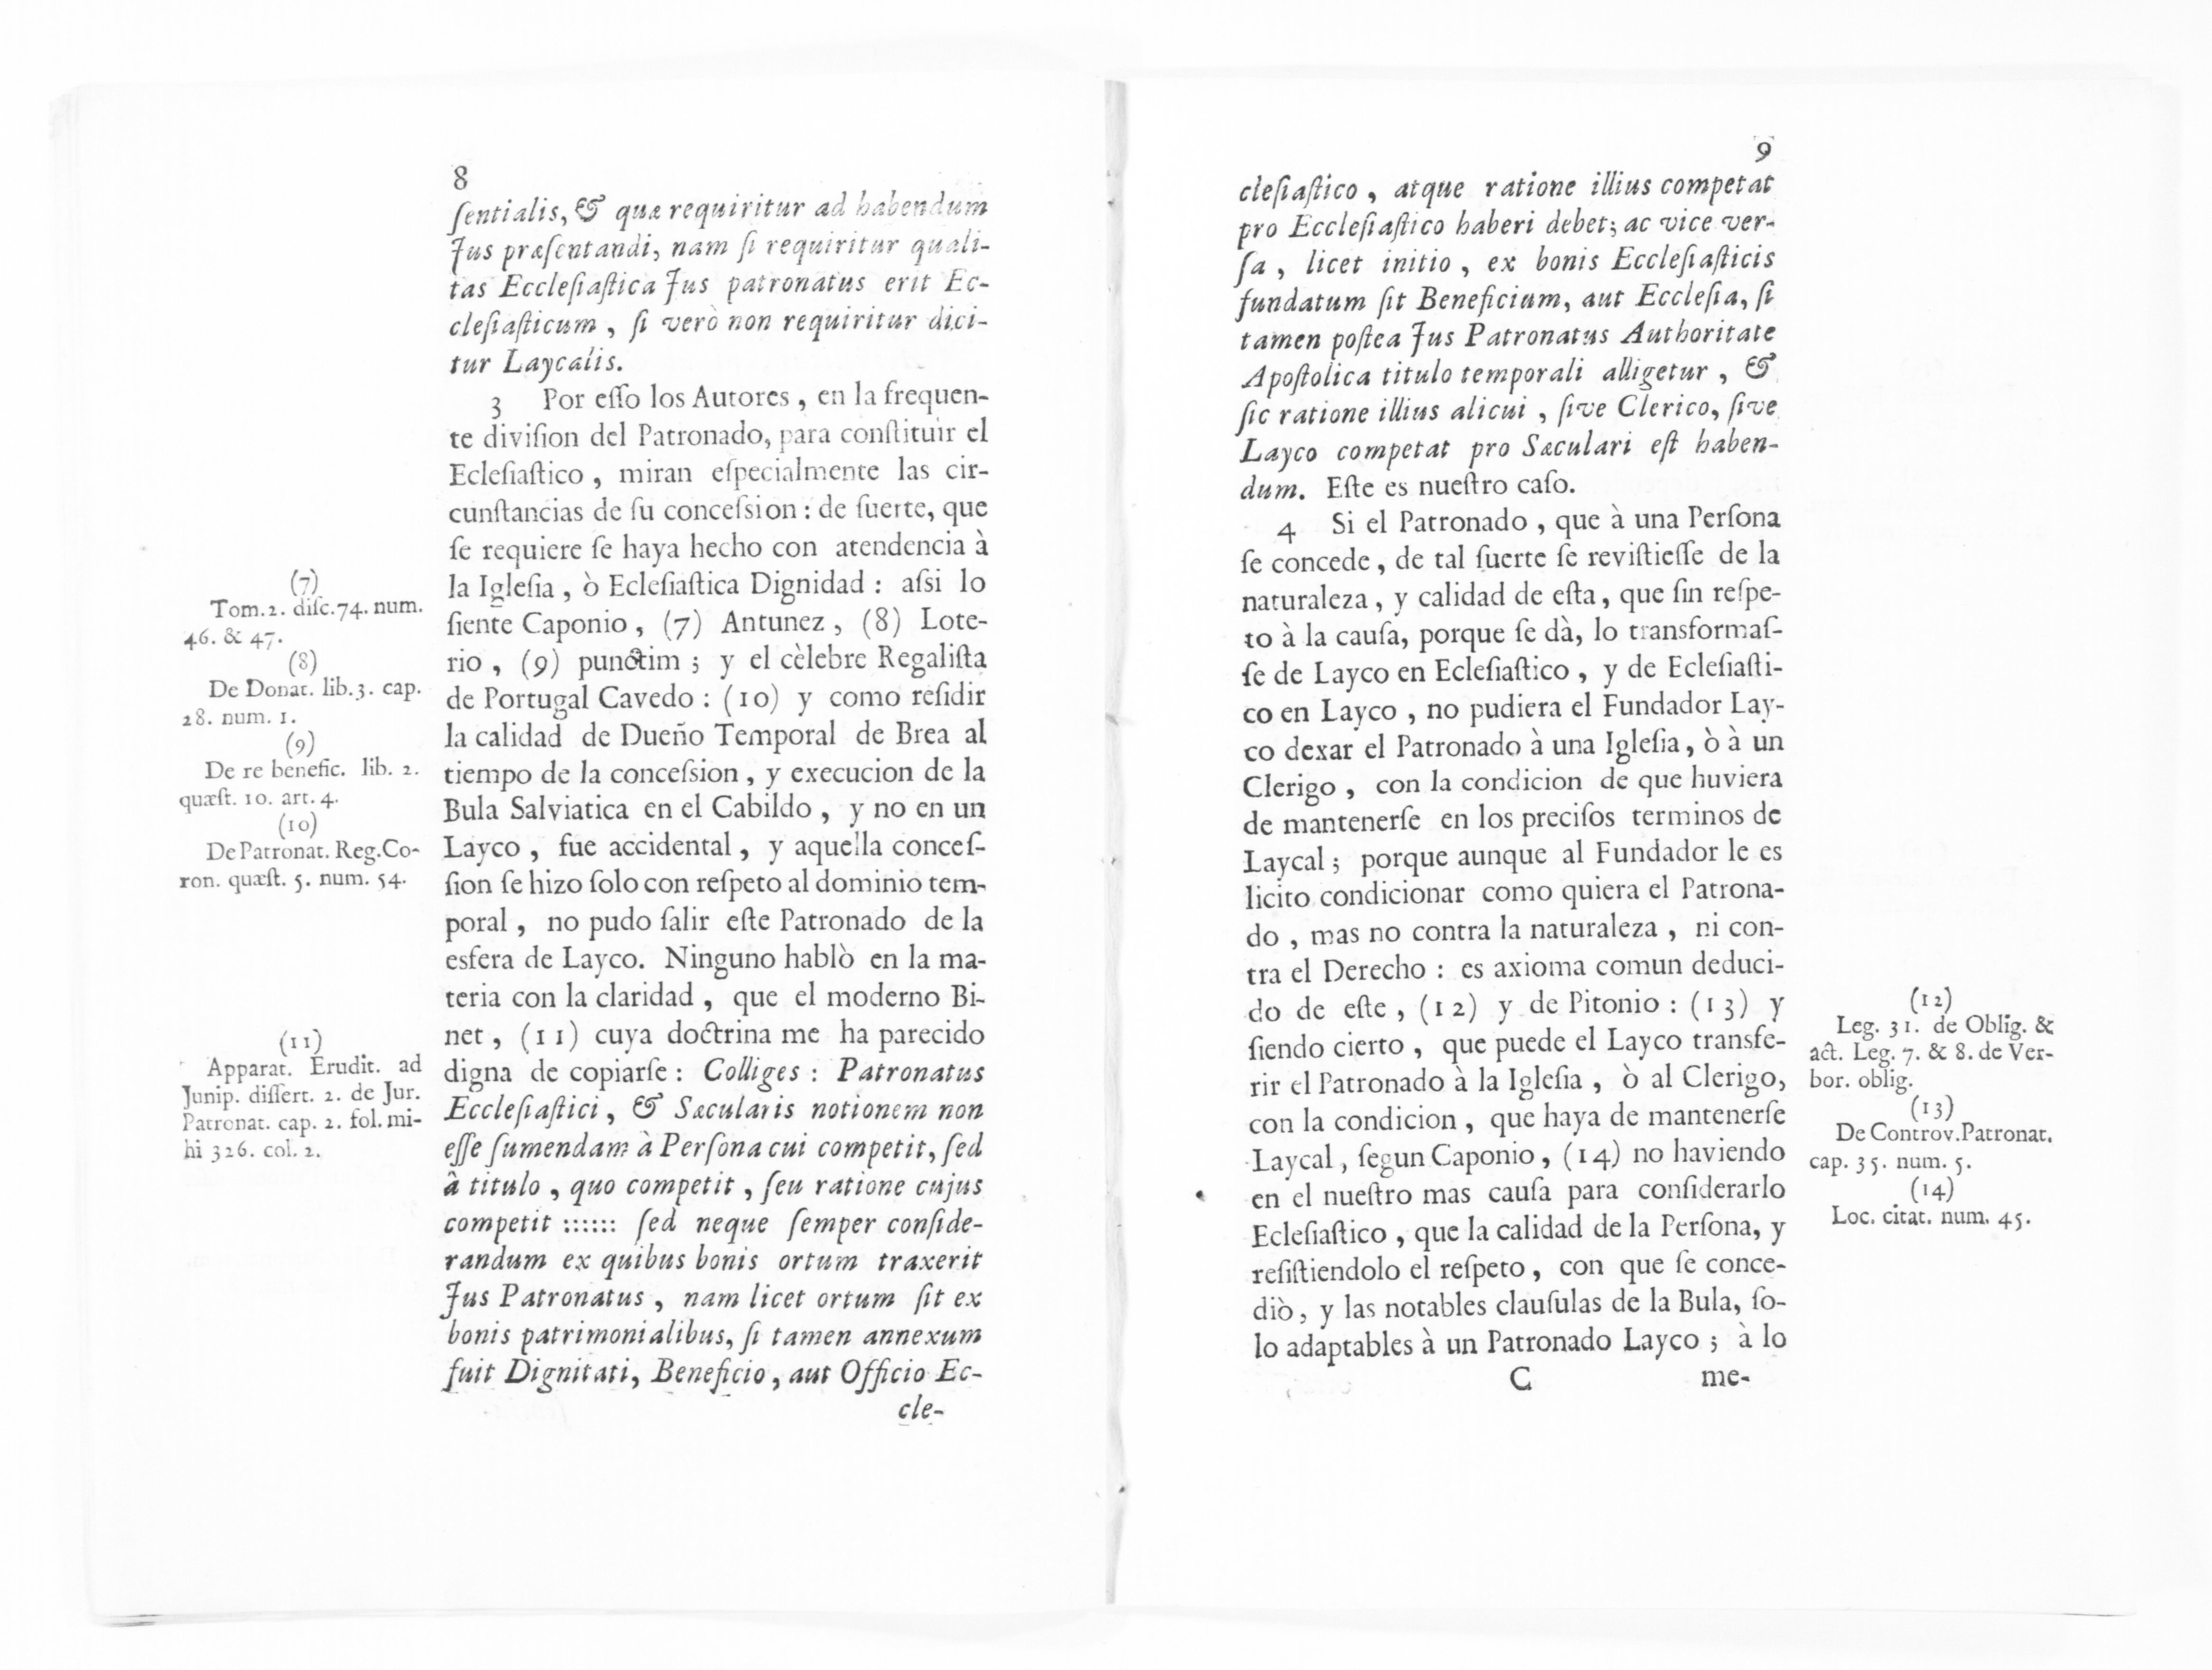 8
ſentialis, & quæ requiritur ad habendum
Jus præſentandi, nam ſi requiritur quali-
tas Eccleſiaſtica Jus patronatus erit Ec-
cleſiaſticum , ſi verò non requiritur dici-
tur Laycalis.
3 Por eſſo los Autores , en la frequen-
te diviſion del Patronado, para conſtituir el
Ecleſiaſtico , miran eſpecialmente las cir-
cunſtancias de ſu conceſsion : de ſuerte, que
ſe requiere ſe haya hecho con atendencia à
la Igleſia , ò Ecleſiaſtica Dignidad : aſsi lo
ſiente Caponio , (7) Antunez , (8) Lote-
rio , (9) punctim ; y el cèlebre Regaliſta
de Portugal Cavedo : (10) y como reſidir
la calidad de Dueño Temporal de Brea al
tiempo de la conceſsion , y execucion de la
Bula Salviatica en el Cabildo , y no en un
Layco , fue accidental , y aquella conceſ-
ſion ſe hizo ſolo con reſpeto al dominio tem-
poral , no pudo ſalir eſte Patronado de la
esfera de Layco. Ninguno hablò en la ma-
teria con la claridad , que el moderno Bi-
net , (11) cuya doctrina me ha parecido
digna de copiarſe : Colliges : Patronatus
Eccleſiaſtici , & Sæcularis notionem non
eſſe ſumendam à Perſona cui competit, ſed
â titulo , quo competit , ſeu ratione cujus
competit :::::: ſed neque ſemper conſide-
randum ex quibus bonis ortum traxerit
Jus Patronatus , nam licet ortum ſit ex
bonis patrimonialibus, ſi tamen annexum
fuit Dignitati, Beneficio , aut Officio Ec-
cle-
(7)
Tom.2. diſc.74. num.
46. & 47.
(8)
De Donat. lib.3. cap.
28. num. 1.
(9)
De re benefic. lib. 2.
quæſt. 10. art. 4.
(10)
De Patronat. Reg.Co-
ron. quæſt. 5. num. 54.
(11)
Apparat. Erudit. ad
Junip. diſſert. 2. de Jur.
Patronat. cap. 2. fol. mi-
hi 326. col. 2.
9
cleſiaſtico , atque ratione illius competat
pro Eccleſiaſtico haberi debet; ac vice ver-
ſa , licet initio , ex bonis Eccleſiaſticis
fundatum ſit Beneficium, aut Eccleſia, ſi
tamen poſtea Jus Patronatus Authoritate
Apoſtolica titulo temporali alligetur , &
ſic ratione illius alicui , ſive Clerico, ſive
Layco competat pro Sæculari eſt haben-
dum. Eſte es nueſtro caſo.
4 Si el Patronado , que à una Perſona
ſe concede , de tal ſuerte ſe reviſtieſſe de la
naturaleza , y calidad de eſta , que ſin reſpe-
to à la cauſa, porque ſe dà, lo transformaſ-
ſe de Layco en Ecleſiaſtico , y de Ecleſiaſti-
co en Layco , no pudiera el Fundador Lay-
co dexar el Patronado à una Igleſia , ò à un
Clerigo , con la condicion de que huviera
de mantenerſe en los preciſos terminos de
Laycal ; porque aunque al Fundador le es
licito condicionar como quiera el Patrona-
do , mas no contra la naturaleza , ni con-
tra el Derecho : es axioma comun deduci-
do de eſte , (12) y de Pitonio : (13) y
ſiendo cierto , que puede el Layco transfe-
rir el Patronado à la Igleſia , ò al Clerigo,
con la condicion , que haya de mantenerſe
Laycal , ſegun Caponio , (14) no haviendo
en el nueſtro mas cauſa para conſiderarlo
Ecleſiaſtico , que la calidad de la Perſona, y
reſiſtiendolo el reſpeto , con que ſe conce-
diò , y las notables clauſulas de la Bula, ſo-
lo adaptables à un Patronado Layco ; à lo
C me-
(12)
Leg. 31. de Oblig. &
act. Leg. 7. & 8. de Ver-
bor. oblig.
(13)
De Controv.Patronat.
cap. 35. num. 5.
(14)
Loc. citat. num. 45.